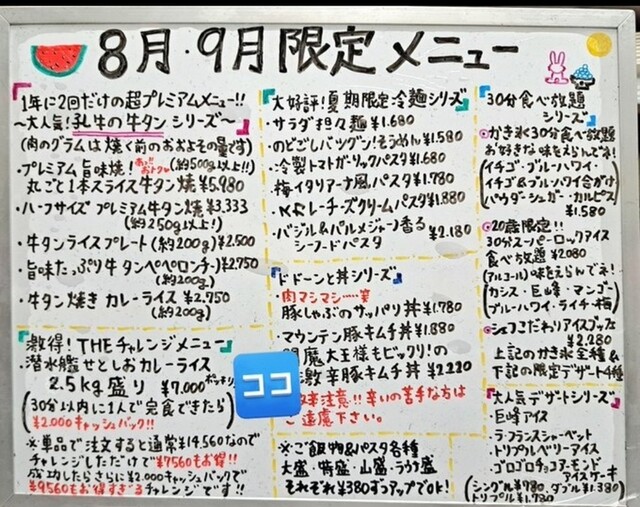 8月・9月限定メニュー
1年に2回だけの超プレミアムメニュー!!
～大人気!乳牛の牛タンシリーズ～
(肉のグラムは焼く前のおおよその量です)
・プレミアム旨味焼! (約500g以上!!)
丸ごと1本スライス牛タン焼 ¥5,980
・ハーフサイズ プレミアム牛タン焼 ¥3,333
(約250g以上!)
・牛タンライスプレート(約200g) ¥2,500
・旨味たっぷり牛タンペペロンチーノ ¥2,750
(約200g)
・牛タン焼きカレーライス ¥2,750
(約200g)
激得! THEチャレンジメニュー
・潜水艦せとしおカレーライス
2.5kg盛り ¥7,000ポッキリ
(30分以内に1人で完食できたら
¥2,000キャッシュバック!!)
※単品で注文すると通常¥14,560なので
チャレンジしただけで¥7560もお得!!
成功したらさらに¥2,000キャッシュバックで
¥9560もお得すぎるチャレンジです!!
大好評!夏期限定冷麺シリーズ
・サラダ担々麺 ¥1,680
・のどごしバツグン!そうめん ¥1,580
・冷製トマトガーリックパスタ ¥1,680
・梅イタリアーナ風パスタ ¥1,780
レーチーズクリームパスタ ¥1,880
・バジル&パルメジャーノ香る
シーフードパスタ ¥2,180
ドドーンと丼シリーズ
・肉マシマシ……笑
豚しゃぶのサッパリ丼 ¥1,780
・マウンテン豚キムチ丼 ¥1,880
魔大王様もビックリ!の
激辛豚キムチ丼 ¥2,220
注意!!辛いの苦手な方は
ご遠慮下さい。
ココ
※ご飯物&パスタ各種
大盛・特盛・山盛・うず盛
それぞれ¥380ずつアップでOK!
30分食べ放題
シリーズ
◎かき氷30分食べ放題
お好きな味をえらんでネ!
(イチゴ・ブルーハワイ・
イチゴ&ブルーハワイ合がけ
パウダーシュガー・カルピス)
¥1,580
◎20歳限定!!
30分スーパーロックアイス
食べ放題 ¥2,080
(アルコール)味をえらんでネ!
(カシス・巨峰・マンゴー
ブルーハワイ・ライチ・梅)
◎シェフこだわりアイスコッフェ
¥2,280
上記のかき氷全種&
下記の限定デザート4種
大人気デザートシリーズ
・巨峰アイス
・ラ・フランスシャーベット
・トリプルベリーアイス
・ゴロゴロチョコアーモンド
アイスケーキ
(シングル¥980、ダブル¥1,380
トリプル¥1,780)